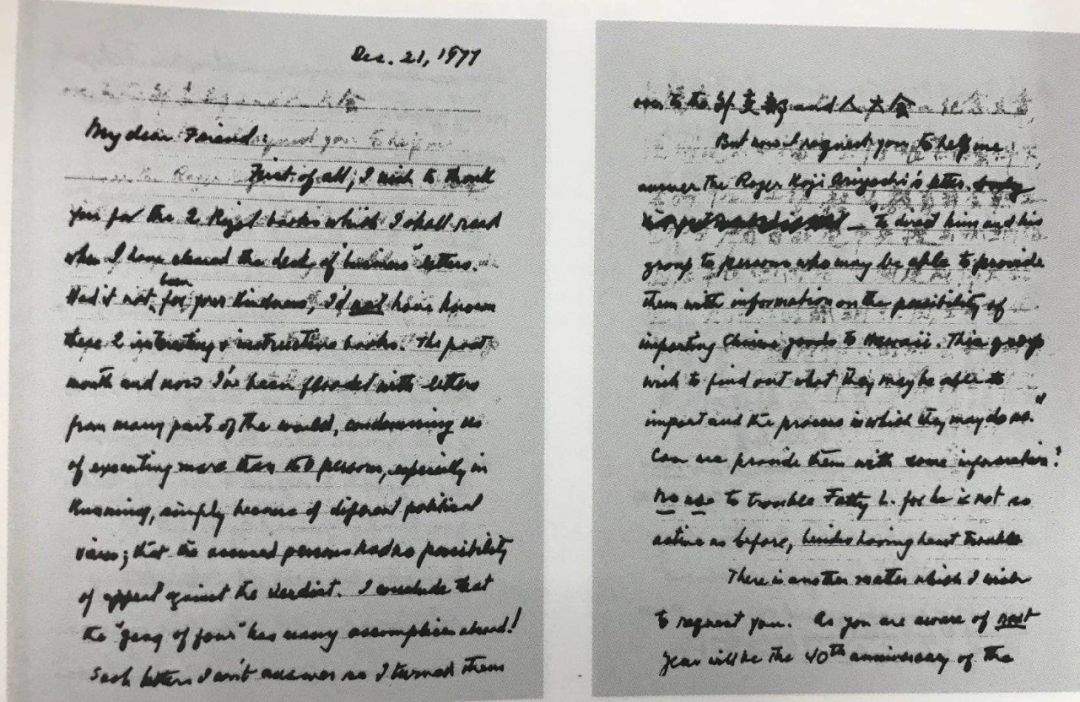 Dec. 21, 1977
My dear Friend:
First of all, I wish to thank
you for the 2 books which I shall read
when I have cleared the desk of "business" letters.
Had it not been for your kindness, I'd not have known
these 2 interesting & instructive books. The past
month and now I've been flooded with letters
from many parts of the world, condemning us
of executing more than persons, especially in
Kunming, simply because of different political
views; that the accused persons had no possibility
of appeal against the verdict. I conclude that
the "gang of four" has many accomplices abroad!
Such letters I don't answer so I turned them
over to the 外交部 and 人大会
But now I request you to help me
answer the Roger Koji Ariyoshi's letter.
— "to direct him and his
group to persons who may be able to provide
them with information on the possibility of
importing Chinese goods to Hawaii. This group
wish to find out what they may be able to
import and the process in which they may do so."
Can we provide them with some information?
No use to trouble Fatty L. for he is not so
active as before, besides having heart trouble
There is another matter which I wish
to request you. As you are aware of next
year will be the 40th anniversary of the